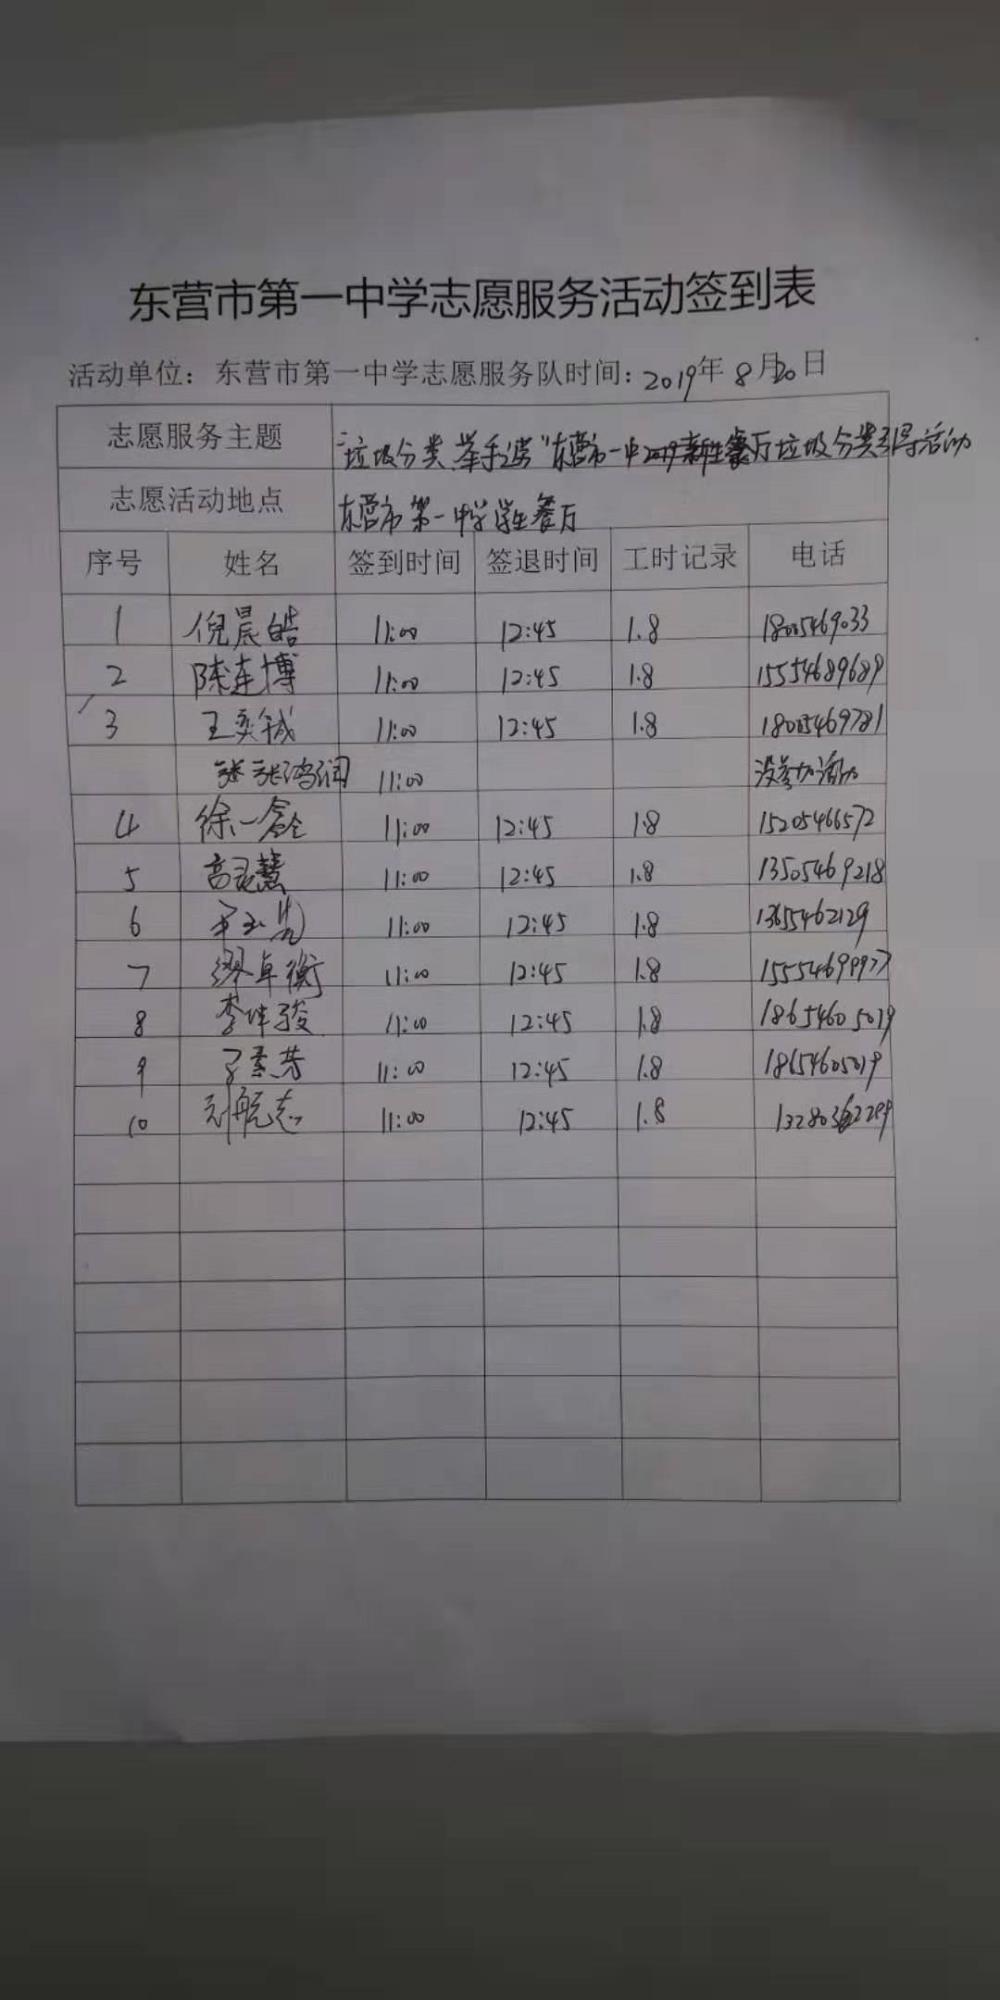 东营市第一中学志愿服务活动签到表
活动单位：东营市第一中学志愿服务队时间：2019年8月20日
志愿服务主题 "垃圾分类 举手之劳"东营市一中餐厅垃圾分类引导活动
志愿活动地点 东营市第一中学学生餐厅
序号 姓名 签到时间 签退时间 工时记录 电话
1 倪晨皓 11:00 12:45 1.8 18005469033
2 陈连博 11:00 12:45 1.8 15554689689
3 王奕铖 11:00 12:45 1.8 18005469781
张鸿润 11:00 没参加活动
4 徐一 11:00 12:45 1.8 15205466572
5 高灵慧 11:00 12:45 1.8 13505469218
6 11:00 12:45 1.8 13655462129
7 缪卓衡 11:00 12:45 1.8
8 李坤骏 11:00 12:45 1.8 18654605019
9 11:00 12:45 1.8 18654605019
10 刘航志 11:00 12:45 1.8